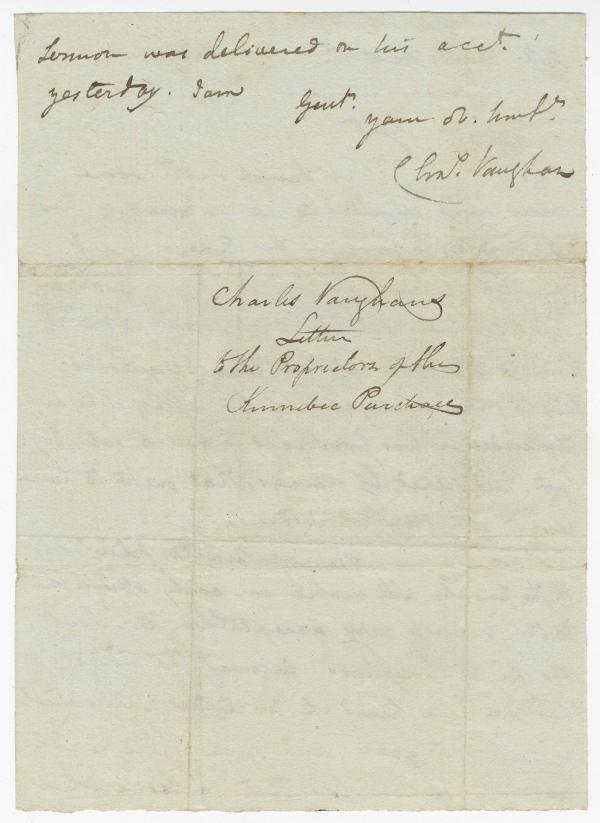 Sermon was delivered on his acct.
yesterday. I am
Gent.
your ob. humb.
Chas. Vaughan
Charles Vaughans
Letter
to the Proprietors of the
Kennebec Purchase